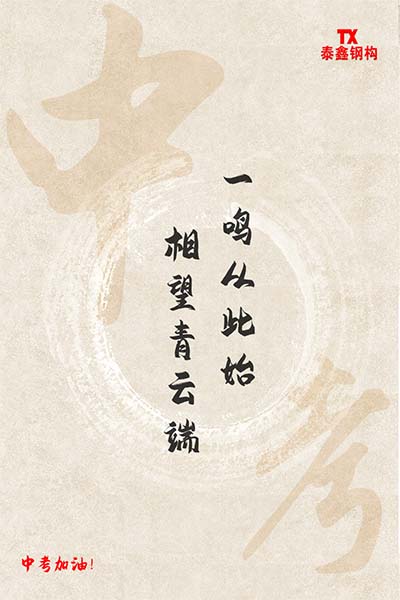 TX
泰鑫钢构
中
考
一鸣从此始
相望青云端
中考加油!